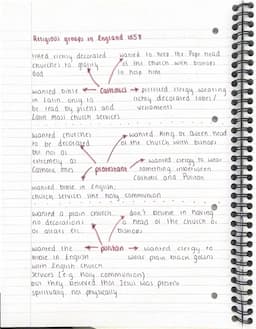 Religious groups in England 1558
liked richly decorated
churches to glorify
God
wanted to have the Pope head
of the church with bishops
to help him
Catholics
wanted bible
in latin only to
be read by priests and
Latin mass church services
preferred clergy wearing
richly decorated robes/
vestments
wanted churches
to be decorated
but not as
extremely as
Catholic ones
wanted King or Queen head
of the church with bishops
protestant
wanted clergy to wear
something inbetween
Catholic and Puritan
wanted bible in English,
church services like holy communion
wanted a plain church
no decorations
or altars etc.
don't believe in having
a head of the church or
bishops
puritan
wanted the
bible in English
with English church
services (e.g. Holy communion)
but they believed that Jesus was present
spiritually, not physically
wanted clergy to
wear plain black gowns